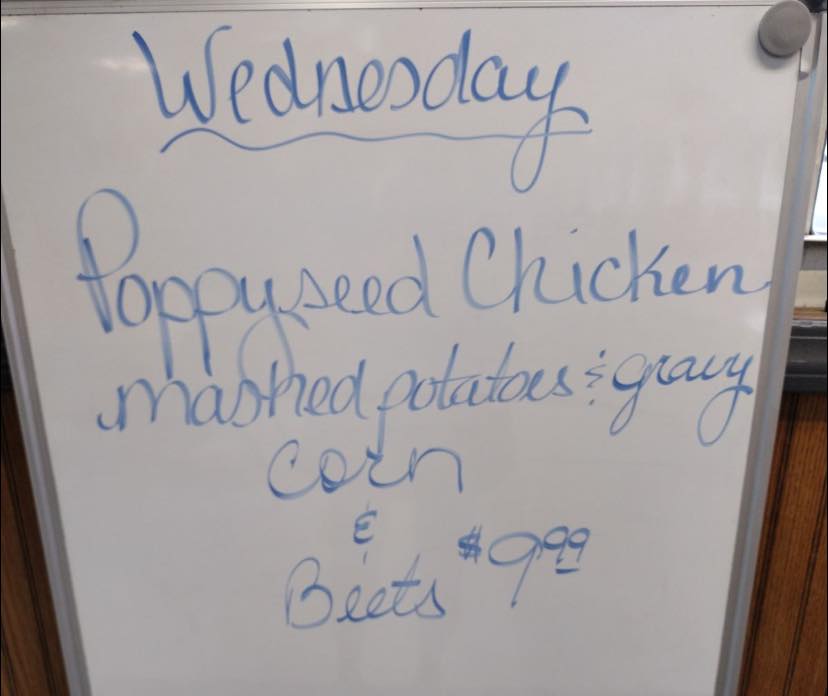 Wednesday
Poppyseed Chicken
mashed potatoes & gravy
corn
&
Beets $9.99